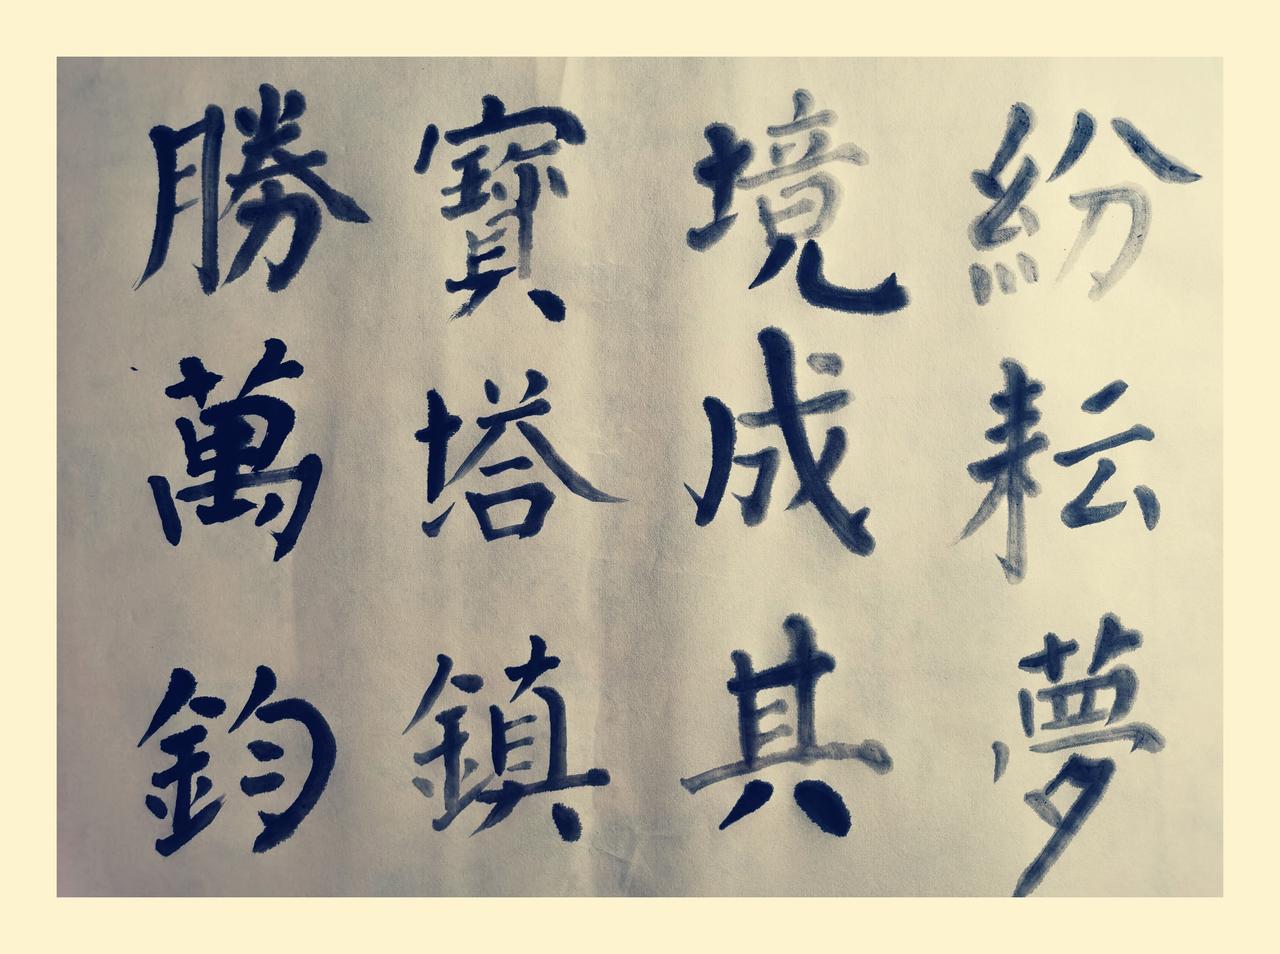 紛耘夢
境成真
寶塔鎮
勝萬鈞